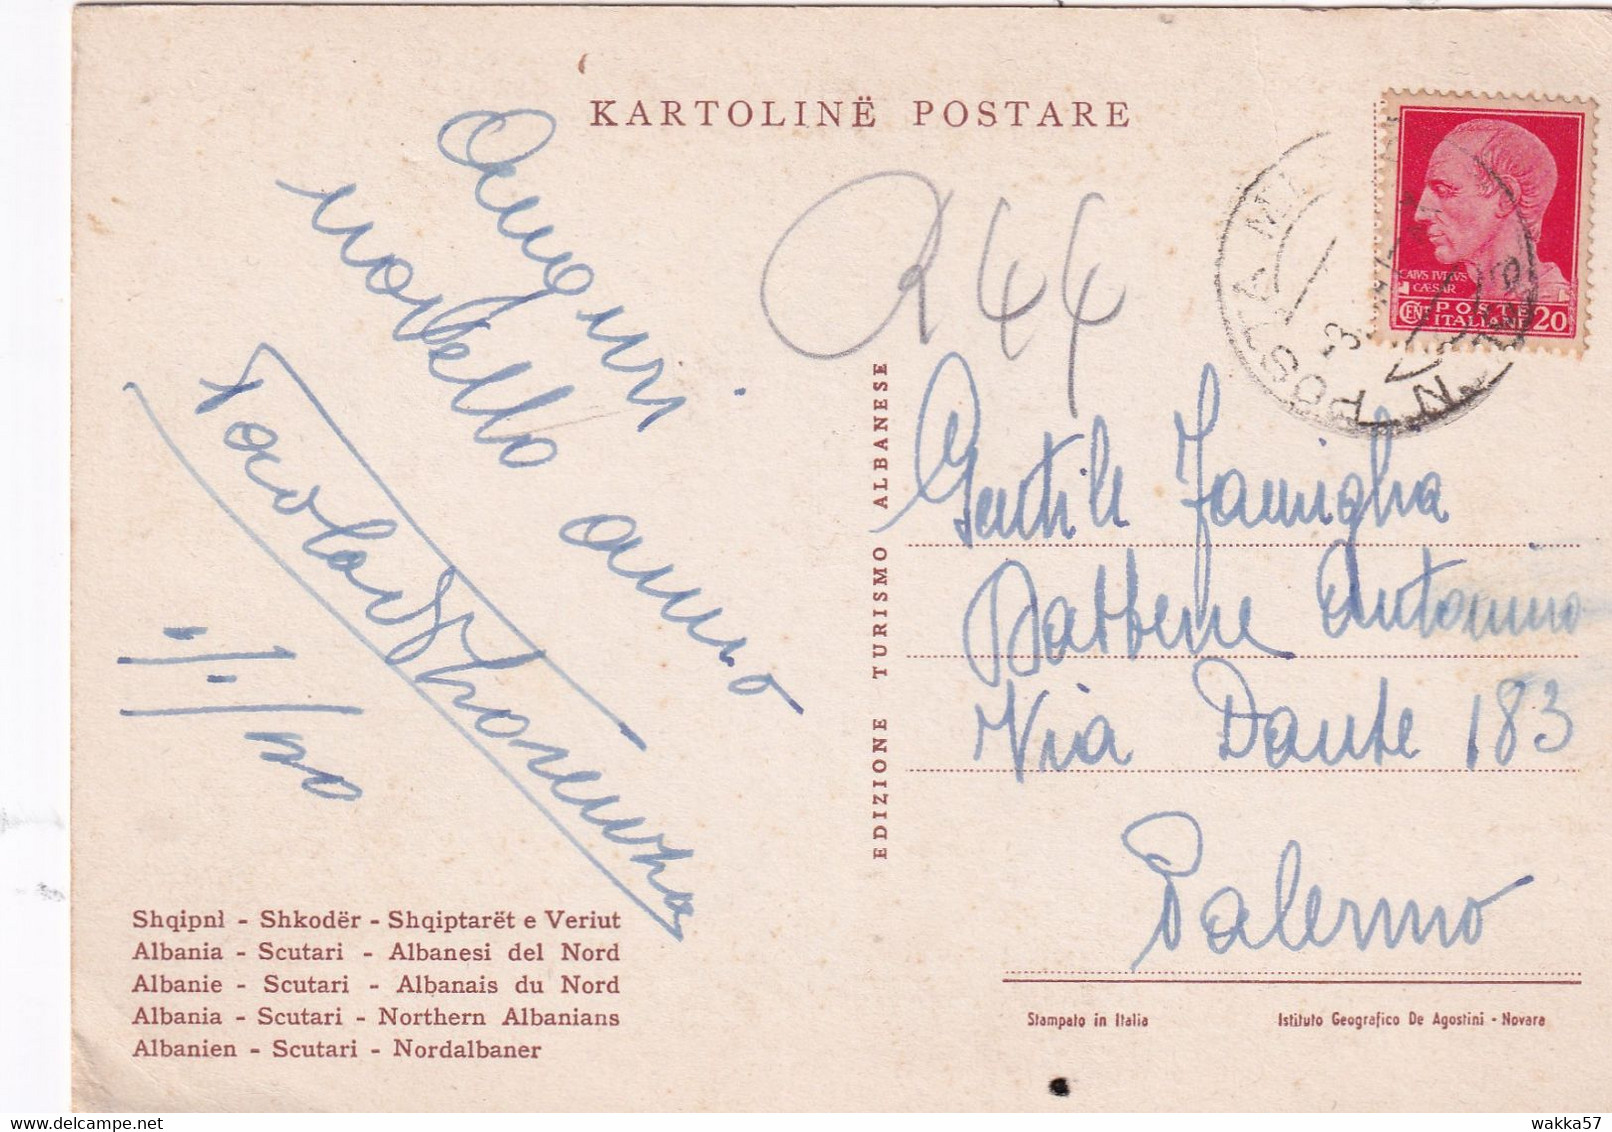 KARTOLINË POSTARE
Auguri
novello anno
1/1/
R 44
CAIVS IVLIVS
CAESAR
CENT POSTE 20
ITALIANE
N. POSTA MI
EDIZIONE TURISMO ALBANESE
Gentile Famiglia
Antonino
Via Dante 183
Palermo
Shqipnì - Shkodër - Shqiptarët e Veriut
Albania - Scutari - Albanesi del Nord
Albanie - Scutari - Albanais du Nord
Albania - Scutari - Northern Albanians
Albanien - Scutari - Nordalbaner
Stampato in Italia
Istituto Geografico De Agostini - Novara
wakka57